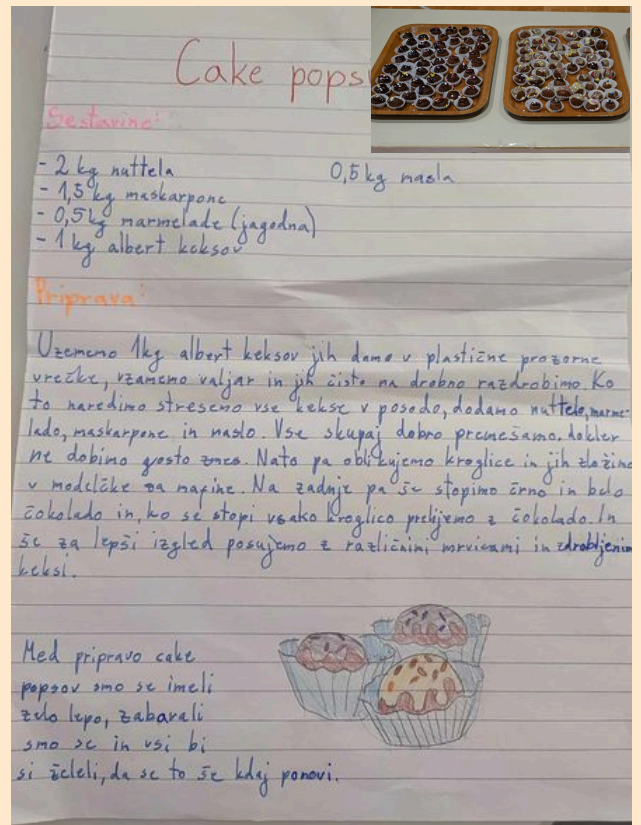 Cake pops
Sestavine:
- 2 kg nuttela
0,5 kg masla
- 1,5 kg maskarpone
- 0,5 kg marmelade (jagodna)
- 1 kg albert keksov
Priprava:
Uzememo 1kg albert keksov jih damo v plastične prozorne
vrečke, vzamemo valjar in jih čisto na drobno razdrobimo. Ko
to naredimo stresemo vse kekse v posodo, dodamo nuttelo, marme-
lado, maskarpone in maslo. Vse skupaj dobro premešamo, dokler
ne dobimo gosto zmes. Nato pa oblikujemo kroglice in jih zložimo
v modelčke za mafine. Na zadnje pa še stopimo črno in belo
čokolado in, ko se stopi vsako kroglico prelijemo z čokolado. In
še za lepši izgled posujemo z različnimi mrvicami in zdrobljenim
keksi.
Med pripravo cake
popsov smo se imeli
zelo lepo, zabavali
smo se in vsi bi
si želeli, da se to še kdaj ponovi.